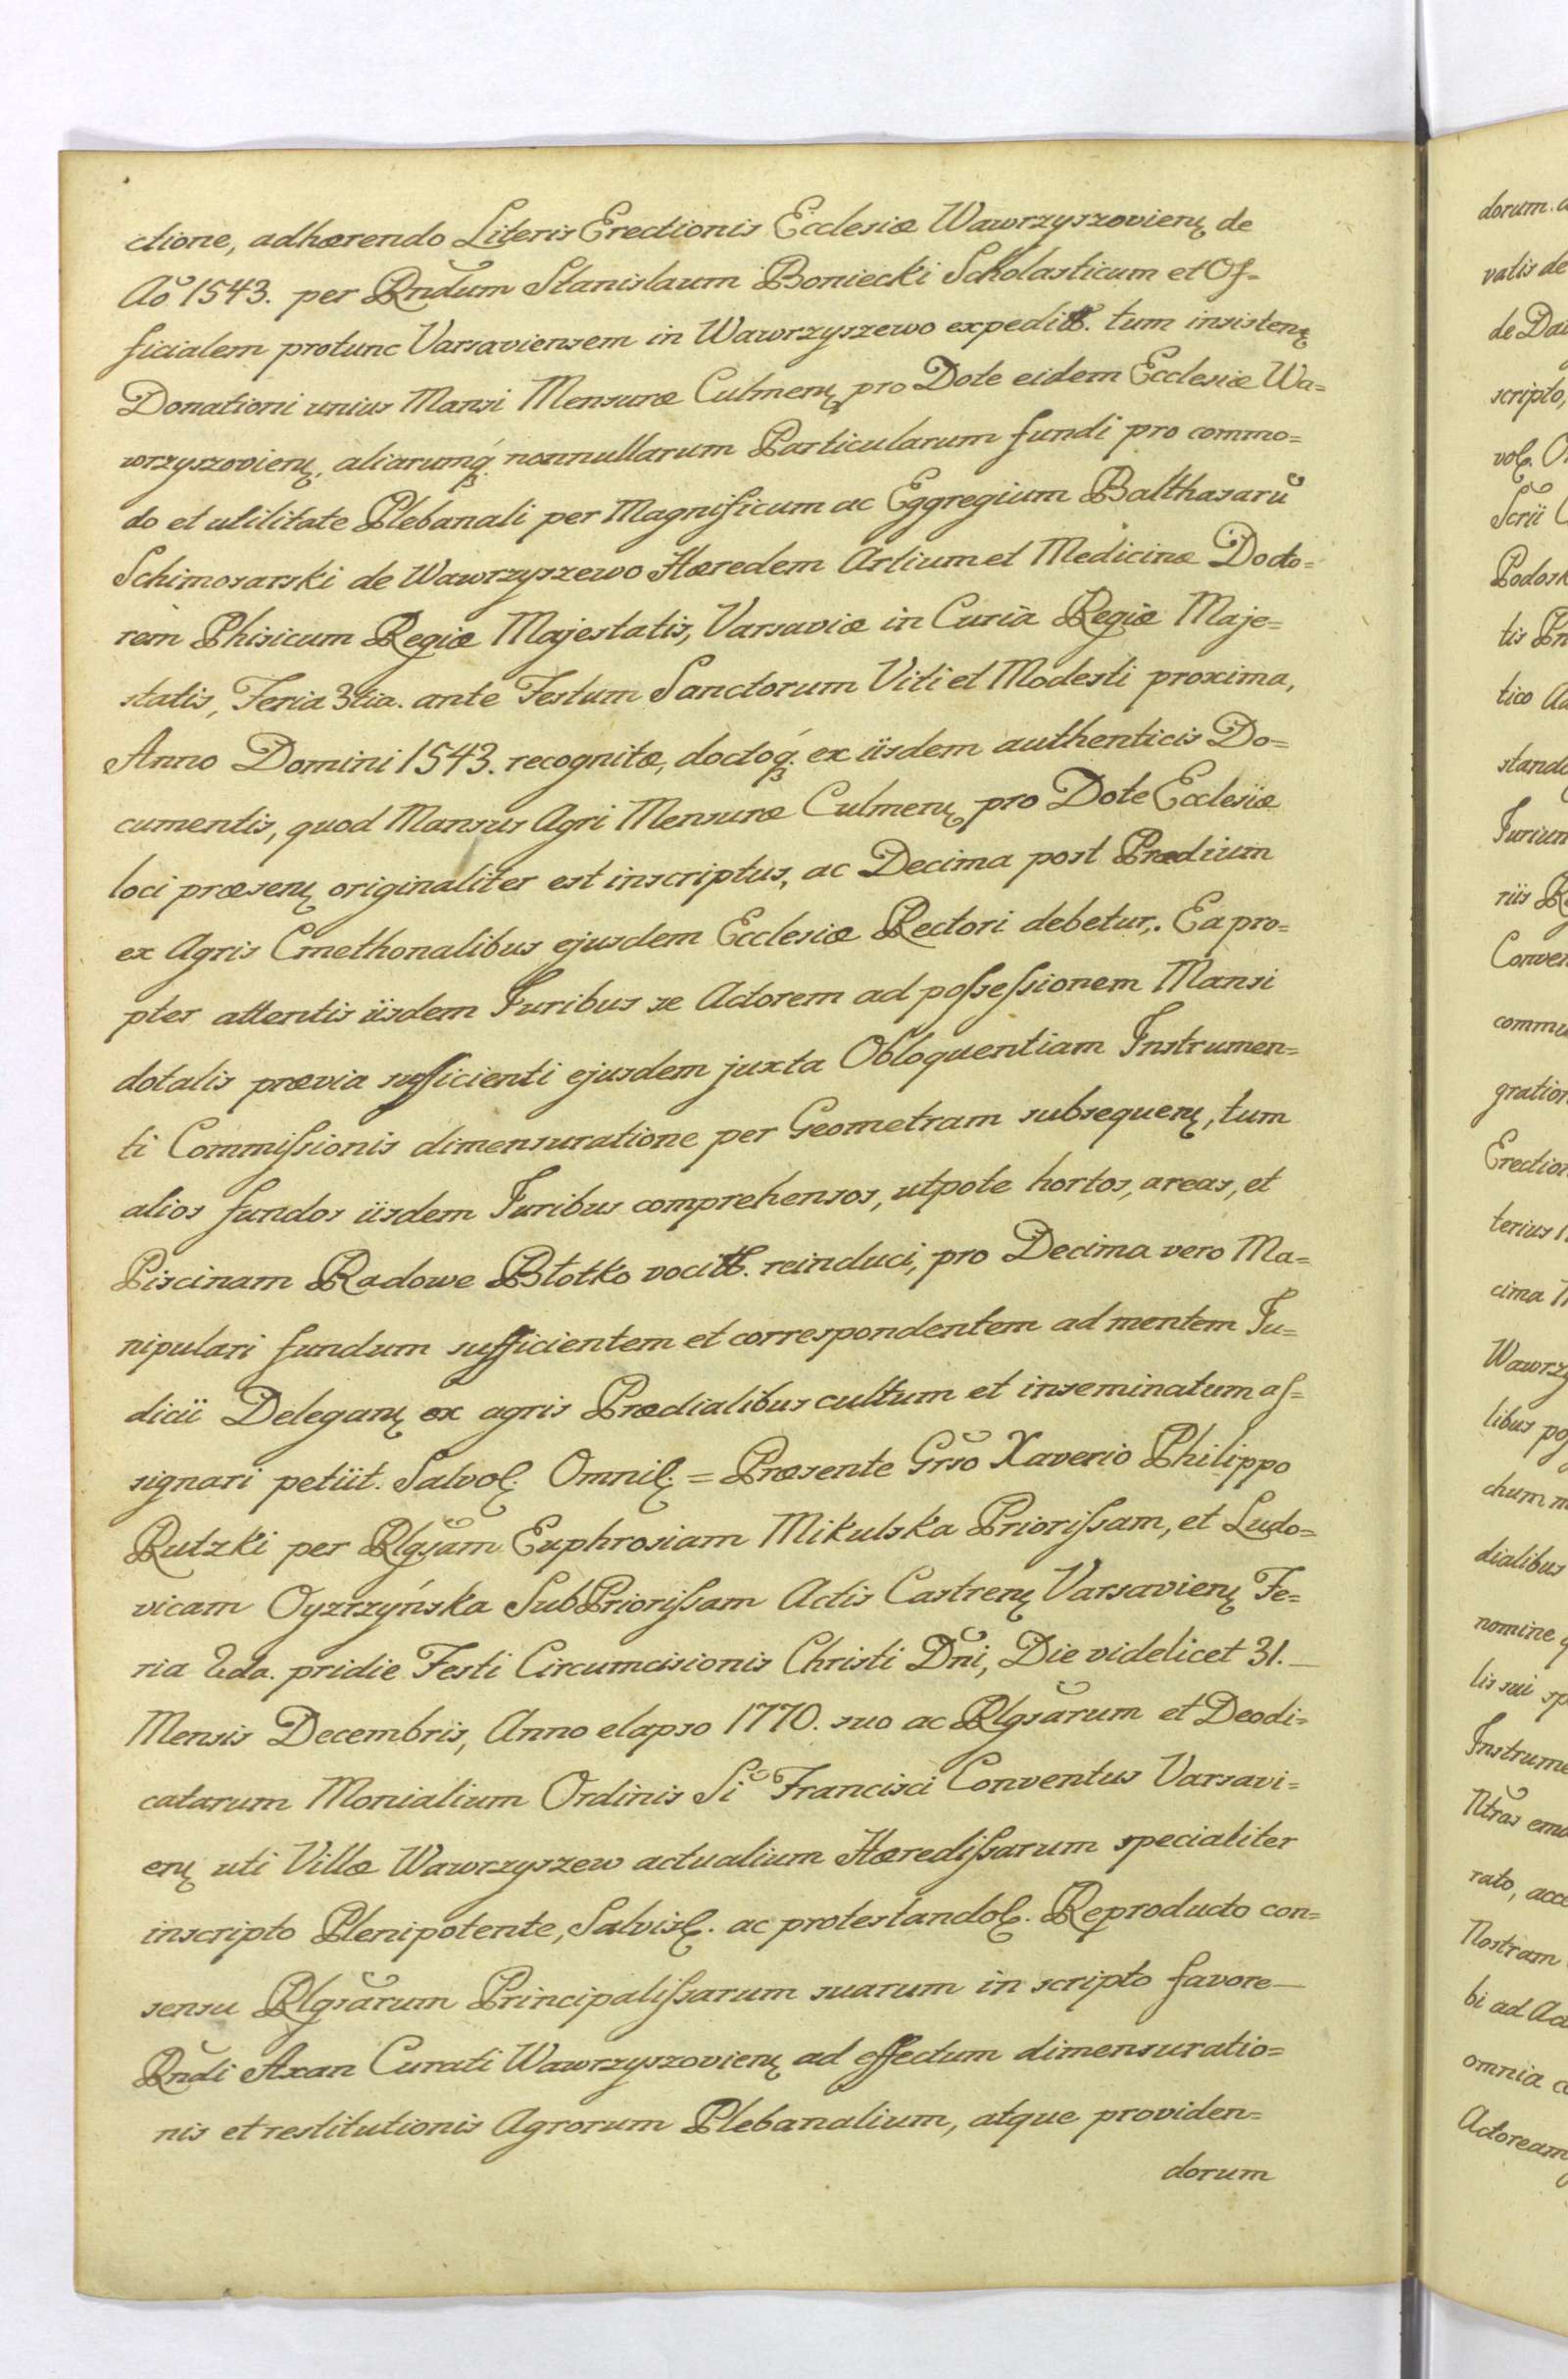 ctione, adhærendo Literis Erectionis Ecclesiæ Wawrzyszovienꝭ de
Aõ 1543. per Rndum Stanislaum Boniecki Scholasticum et Of=
ficialem protunc Varsaviensem in Wawrzyszewo expeditt. tum insistenꝭ
Donationi unius Mansi Mensuræ Culmenꝭ pro Dote eidem Ecclesiæ Wa=
wrzyszovienꝭ, aliarumq́ꝫ nonnullarum Particularum fundi pro commo=
do et utilitate Plebanali per Magnificum ac Eggregium Balthasarũ
Schimosarski de Wawrzyszewo Hæredem Artium et Medicinæ Docto=
rem Phisicum Regiæ Majestatis, Varsaviæ in Curia Regiæ Maje=
statis, Feria 3tia. ante Festum Sanctorum Viti et Modesti proxima,
Anno Domini 1543. recognitæ, doctoq́ꝫ ex iisdem authenticis Do=
cumentis, quod Mansus Agri Mensuræ Culmenꝭ pro Dote Ecclesiæ
loci præsenꝭ originaliter est inscriptus, ac Decima post Prædium
ex Agris Cmethonalibus ejusdem Ecclesiæ Rectori debetur,. Ea pro=
pter attentis iisdem Juribus se Actorem ad possessionem Mansi
dotalis prævia sufficienti ejusdem juxta Obloquentiam Instrumen=
ti Commissionis dimensuratione per Geometram subsequenꝭ, tum
alios fundos iisdem Juribus comprehensos, utpote hortos, areas, et
Piscinam Radowe Błotko vocitt. reinduci, pro Decima vero Ma=
nipulari fundum sufficientem et correspondentem ad mentem Ju=
dicii Deleganꝭ ex agris Prædialibus cultum et inseminatum as=
signari petiit. Salvoꝭ Omniꝭ = Præsente Grso Xaverio Philippo
Rutzki per Rlgsam Euphrosiam Mikulska Priorissam, et Ludo=
vicam Oyzrzyńska SubPriorissam Actis Castrenꝭ Varsavienꝭ Fe=
ria 2da. pridie Festi Circumcisionis Christi Dni, Die videlicet 31.
Mensis Decembris, Anno elapso 1770. suo ac Rlgsarum et Deodi=
catarum Monialium Ordinis Si Francisci Conventus Varsavi=
enꝭ uti Villæ Wawrzyszew actualium Hæredissarum specialiter
inscripto Plenipotente, Salvisꝭ. ac protestandoꝭ. Reproducto con=
sensu Rlgsarum Principalissarum suarum in scripto favore
Rndi Axan Curati Wawrzyszovienꝭ ad effectum dimensuratio=
nis et restitutionis Agrorum Plebanalium, atque providen=
dorum